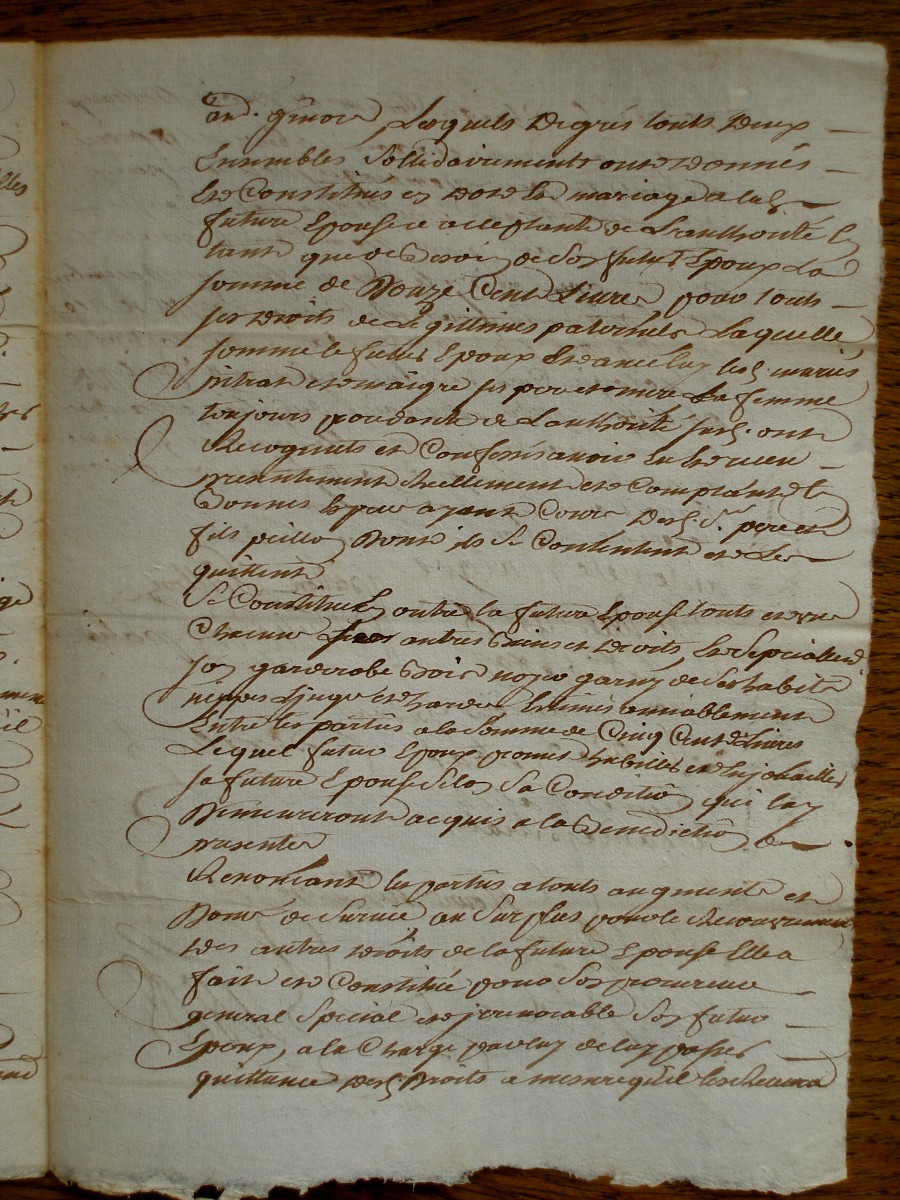 Lesquels degrés touts deux
Ensembles sollidairement ont donnés
Et Constitués en dot de mariage a lad.
future Epouse acceptante de Lauthorité En
tant que de besoin de son futur Epoux La
somme de Douze Cent Livres pour touts
ses droits de Légittimes paternels Laquelle
somme le futur Epoux lesd. mariés
ses pere et mere La femme
toujours de Lauthorité susd. ont
Recognuts et Confessés avoir Eu et receu
presentement Reellement et Comptant En
bonnes Especes ayant Cours desd. Srs. pere et
fils dont ils se Contentent et Les
quittent
Se Constitue En outre la future Epouse touts et un
Chacuns ses autres biens et droits, Et Specialement
son garderobe bois noyer garny de Ses habits
nippes Linge et hardes Estimés amiablement
Entre les parties a la Somme de Cinq Cent Livres
Lequel futur Epoux promet habiller et Enjoueller
sa future Epouse Selon Sa Condition qui luy
Demeureront acquis a la Benediction des
presentes
Renoncant les parties a touts augments et
Dons de Survie au Surplus pour le Recouvrement
Des autres Droits de la future Epouse Elle a
fait et Constitué pour Son procureur
general Special et jrrevocable Son futur
Epoux, a la Charge par luy de luy passer
quittance desd. Droits a mesure qu'il les Recevra